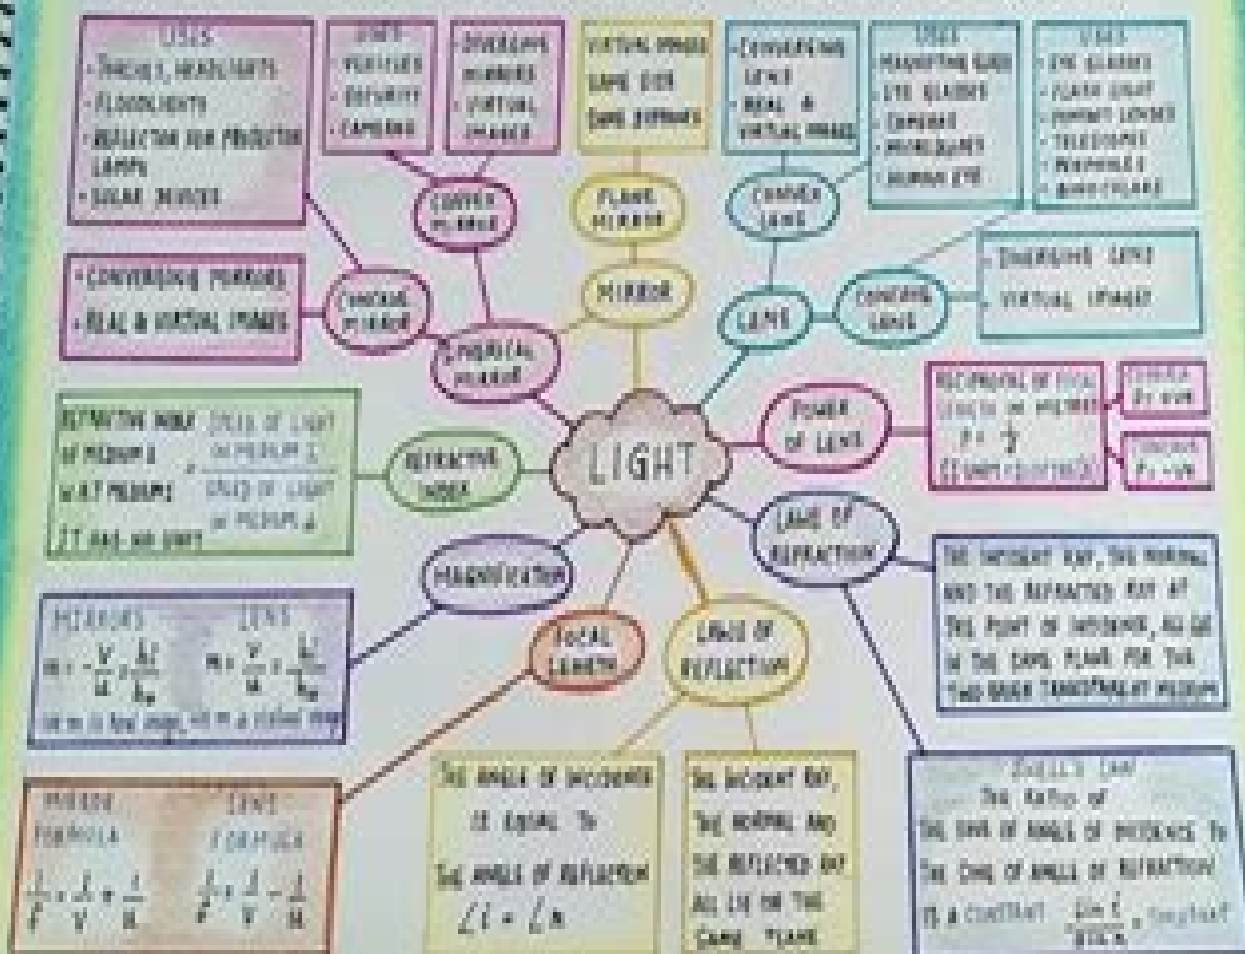 USES
TORCHES, HEADLIGHTS
FLOODLIGHTS
REFLECTOR FOR PROJECTOR
LAMPS
SOLAR DEVICES
USES
VEHICLES
SECURITY
CAMERAS
DIVERGING
MIRRORS
VIRTUAL
IMAGES
VIRTUAL IMAGES
SAME SIZE
CONVERGING
LENS
REAL &
VIRTUAL IMAGES
USES
MAGNIFYING GLASS
EYE GLASSES
CAMERAS
MICROSCOPES
HUMAN EYE
USES
EYE GLASSES
FLASH LIGHT
LENSES
TELESCOPES
PEEPHOLES
BINOCULARS
CONVEX
MIRROR
PLANE
MIRROR
CONVEX
LENS
CONVERGING MIRRORS
REAL & VIRTUAL IMAGES
CONCAVE
MIRROR
MIRROR
LENS
CONCAVE
LENS
DIVERGING LENS
VIRTUAL IMAGES
SPHERICAL
MIRROR
LIGHT
POWER
OF LENS
RECIPROCAL OF FOCAL
LENGTH IN METRES
P = 1/f
CONVEX
P = +VE
CONCAVE
P = -VE
REFRACTIVE INDEX
OF MEDIUM 2
W.R.T MEDIUM 1
= SPEED OF LIGHT
IN MEDIUM 1
SPEED OF LIGHT
IN MEDIUM 2
IT HAS NO UNIT
REFRACTIVE
INDEX
LAWS OF
REFRACTION
THE INCIDENT RAY, THE NORMAL
AND THE REFRACTED RAY AT
THE POINT OF INCIDENCE, ALL LIE
IN THE SAME PLANE FOR THE
TWO GIVEN TRANSPARENT MEDIUM
MAGNIFICATION
MIRRORS
m = -v/u = hi/ho
LENS
m = v/u = hi/ho
FOCAL
LENGTH
LAWS OF
REFLECTION
MIRROR
FORMULA
1/f = 1/v + 1/u
LENS
FORMULA
1/f = 1/v - 1/u
THE ANGLE OF INCIDENCE
IS EQUAL TO
THE ANGLE OF REFLECTION
∠i = ∠r
THE INCIDENT RAY,
THE NORMAL AND
THE REFLECTED RAY
ALL LIE ON THE
SAME PLANE
SNELL'S LAW
THE RATIO OF
THE SINE OF ANGLE OF INCIDENCE TO
THE SINE OF ANGLE OF REFRACTION
IS A CONSTANT sin i/sin r = CONSTANT